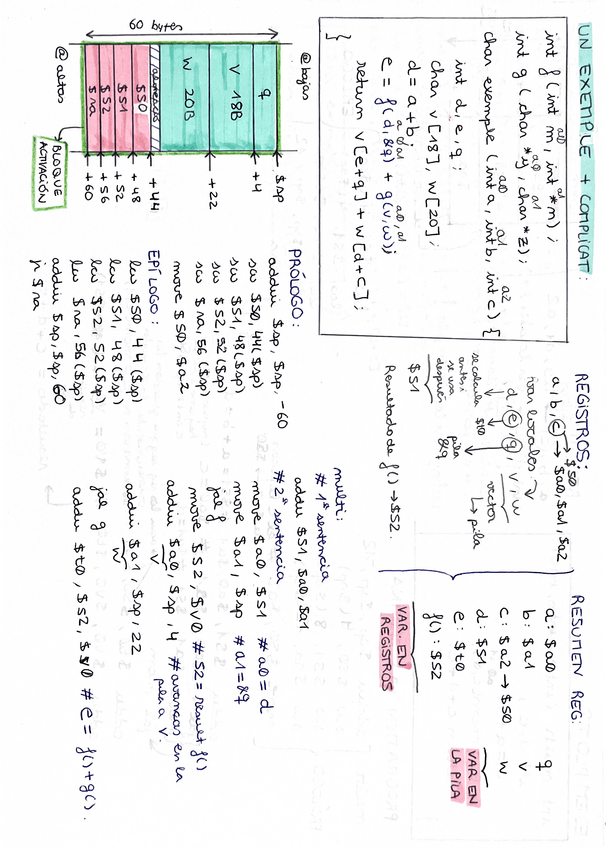 UN EXEMPLE + COMPLICAT:
a0 a1
int f (int m, int *n);
a0 a1
int g (char *y, char *z);
a0 a1 a2
char exemple (int a, int b, int c) {
int d, e, q;
char v[18], w[20];
d = a + b;
a0 a1 a0, a1
e = f(d, &q) + g(v, w);
return v[e+q] + w[d+c];
}
60 bytes
@bajas
@altas
q
V 18B
W 20B
$S0
$S1
$S2
$ra
$sp
+4
+22
+44
+48
+52
+56
+60
BLOQUE
ACTIVACIÓN
REGISTROS:
$S0
a, b, c → $a0, $a1, $a2
var locales:
d, e, q, v, w
vector
↳ pila
se calcula
antes,
se usa
después
$S1
$t0
pila
&q
Resultado de f() → $S2.
RESUMEN REG:
a: $a0
b: $a1
c: $a2 → $S0
d: $S1
e: $t0
f(): $S2
VAR. EN
REGISTROS
q
v
w
VAR. EN
LA PILA
PRÓLOGO:
addiu $sp, $sp, -60
sw $S0, 44($sp)
sw $S1, 48($sp)
sw $S2, 52($sp)
sw $ra, 56($sp)
move $S0, $a2
EPÍLOGO:
lw $S0, 44($sp)
lw $S1, 48($sp)
lw $S2, 52($sp)
lw $ra, 56($sp)
addiu $sp, $sp, 60
jr $ra
multi:
# 1ª sentencia
addu $S1, $a0, $a1
# 2ª sentencia
move $a0, $S1 # a0 = d
move $a1, $sp # a1 = &q
jal f
move $S2, $v0 # S2 = result f()
addiu $a0, $sp, 4 # avanzas en la
v
pila a V.
addiu $a1, $sp, 22
w
jal g
addu $t0, $S2, $v0 # e = f() + g().